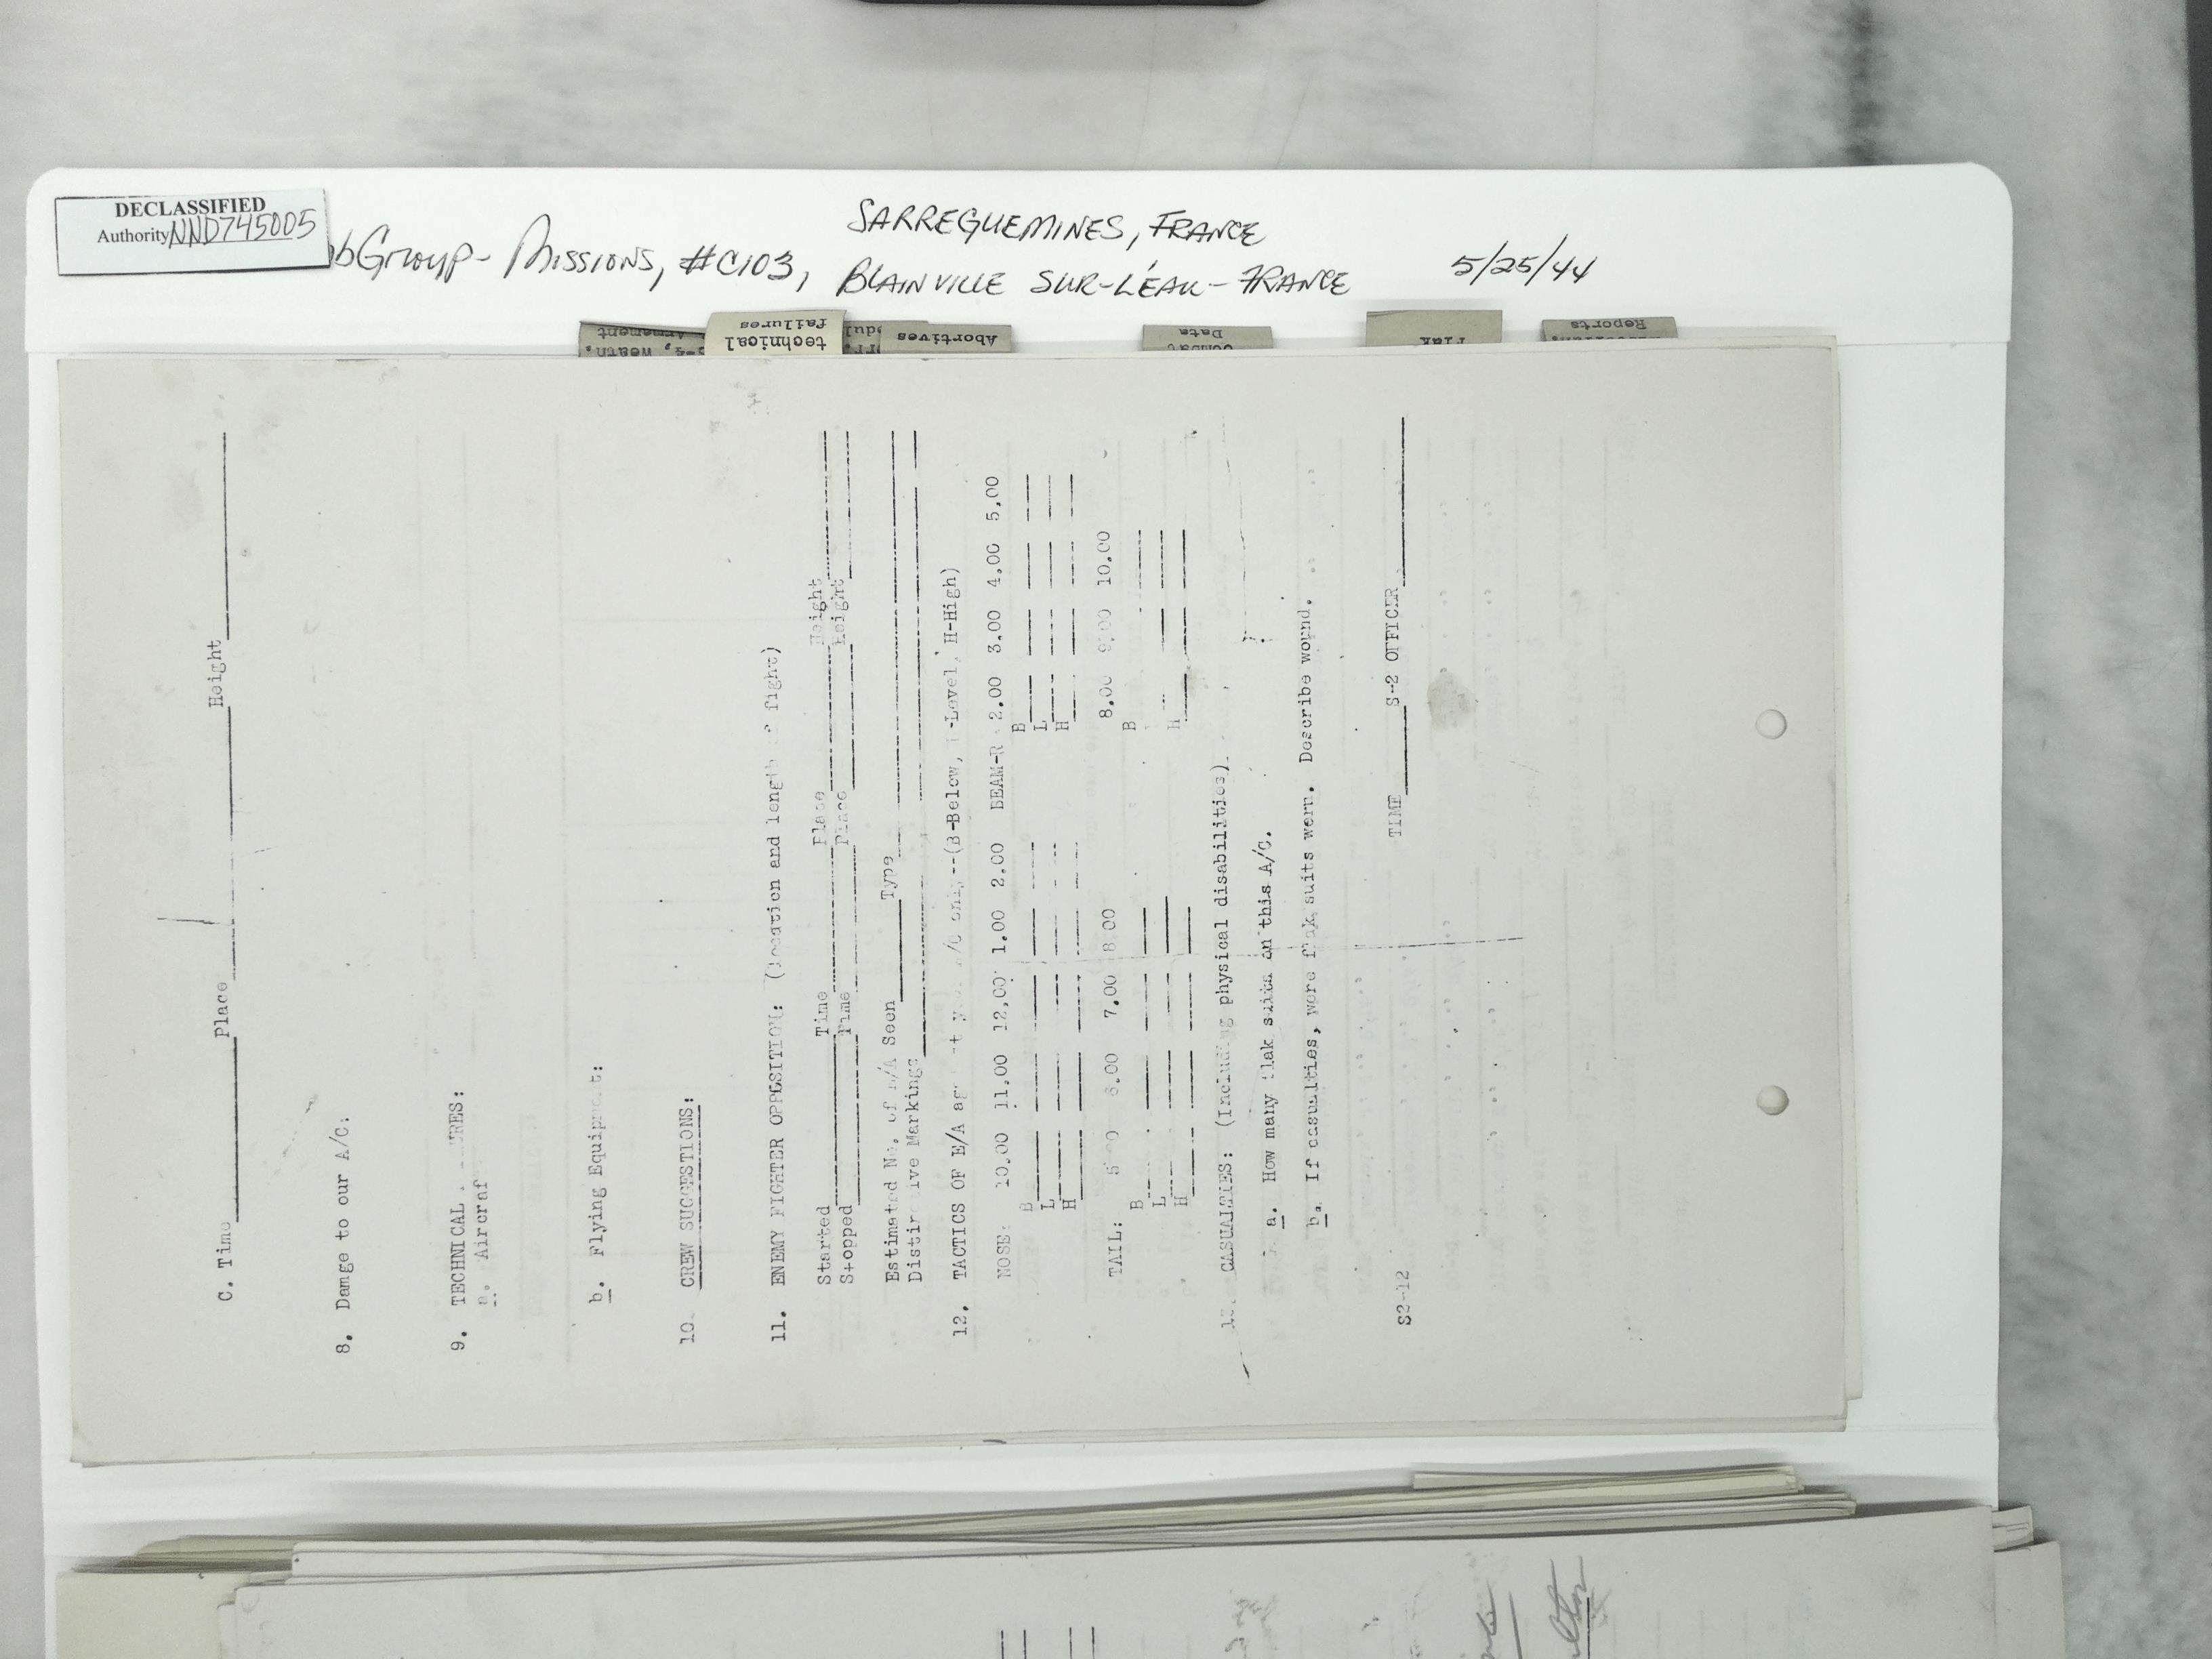 DECLASSIFIED
Authority NND745005
bGroup - Missions, #C103,
SARREGUEMINES, FRANCE
BLAINVILLE SUR-L'EAU - FRANCE
5/25/44
Armament
technical
failures
Abortives
Data
Flak
Reports
C. Time Place Height
8. Damage to our A/C:
9. TECHNICAL
a. Aircraf
b. Flying Equip
10. CREW SUGGESTIONS:
11. ENEMY FIGHTER OPPOSITION: (Location and length of fight)
Started Time Place Height
Stopped Time Place Height
Estimated No. of E/A Seen Type
Distinctive Markings
12. TACTICS OF E/A only--(B-Below, L-Level, H-High)
NOSE: 10.00 11.00 12.00 1.00 2.00 BEAM-R 2.00 3.00 4.00 5.00
B B
L L
H H
TAIL: 5.00 6.00 7.00 8.00 8.00 9.00 10.00
B B
L
H H
CASUALTIES: (Including physical disabilities).
a. How many flak suits on this A/C.
b. If casualties, were flak suits worn. Describe wound.
TIME S-2 OFFICER
S2-12